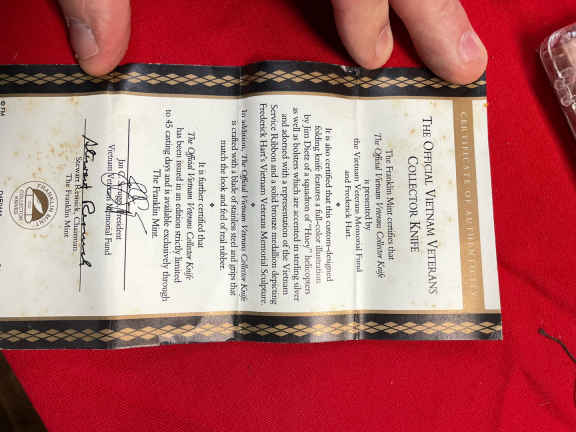 CERTIFICATE OF AUTHENTICITY
THE OFFICIAL VIETNAM VETERANS
COLLECTOR KNIFE
The Franklin Mint certifies that
The Official Vietnam Veterans Collector Knife
is presented by
the Vietnam Veterans Memorial Fund
and Frederick Hart.
It is also certified that this custom-designed
folding knife features a full-color illustration
by Jim Dietz of a squadron of "Huey" helicopters
as well as bolsters which are accented in sterling silver
and adorned with a representation of the Vietnam
Service Ribbon and a solid bronze medallion depicting
Frederick Hart's Vietnam Veterans Memorial Sculpture.
In addition, The Official Vietnam Veterans Collector Knife
is crafted with a blade of stainless steel and grips that
match the look and feel of real rubber.
It is further certified that
The Official Vietnam Veterans Collector Knife
has been issued in an edition strictly limited
to 45 casting days and is available exclusively through
The Franklin Mint.
Jan C. Scruggs, President
Vietnam Veterans Memorial Fund
Stewart Resnick
Stewart Resnick, Chairman
The Franklin Mint
FRANKLIN MINT
© FM